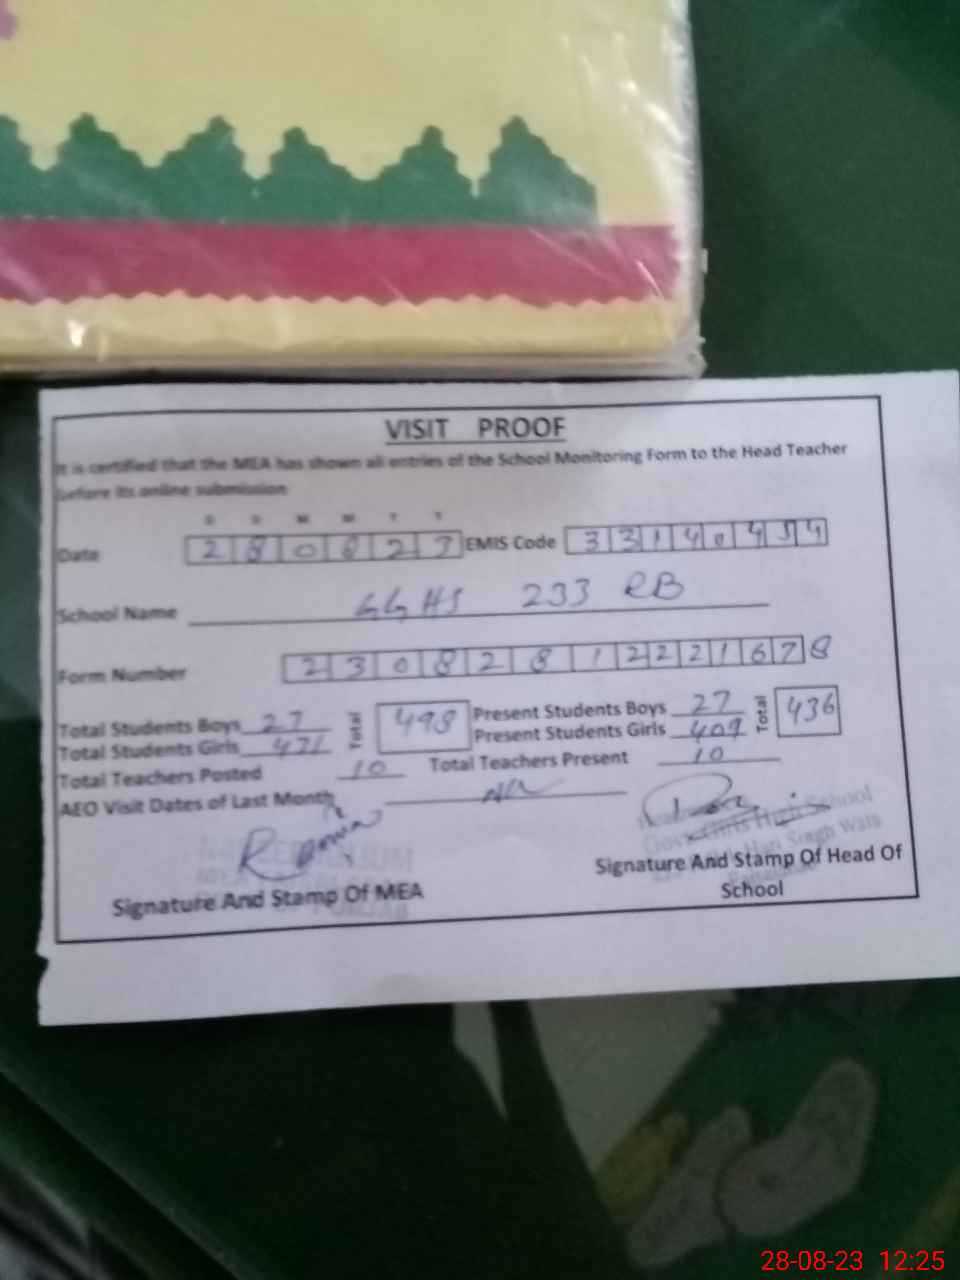 VISIT PROOF
It is certified that the MEA has shown all entries of the School Monitoring Form to the Head Teacher
before its online submission
D D M M Y Y
Date 280823 EMIS Code 33140454
School Name GGHS 233 RB
Form Number 23082812221678
Total Students Boys 27 Total 498 Present Students Boys 27 Total 436
Total Students Girls 471 Present Students Girls 409
Total Teachers Posted 10 Total Teachers Present 10
AEO Visit Dates of Last Month
Govt. Girls High School
Hari Singh Wala
Signature And Stamp Of MEA
Signature And Stamp Of Head Of
School
28-08-23 12:25